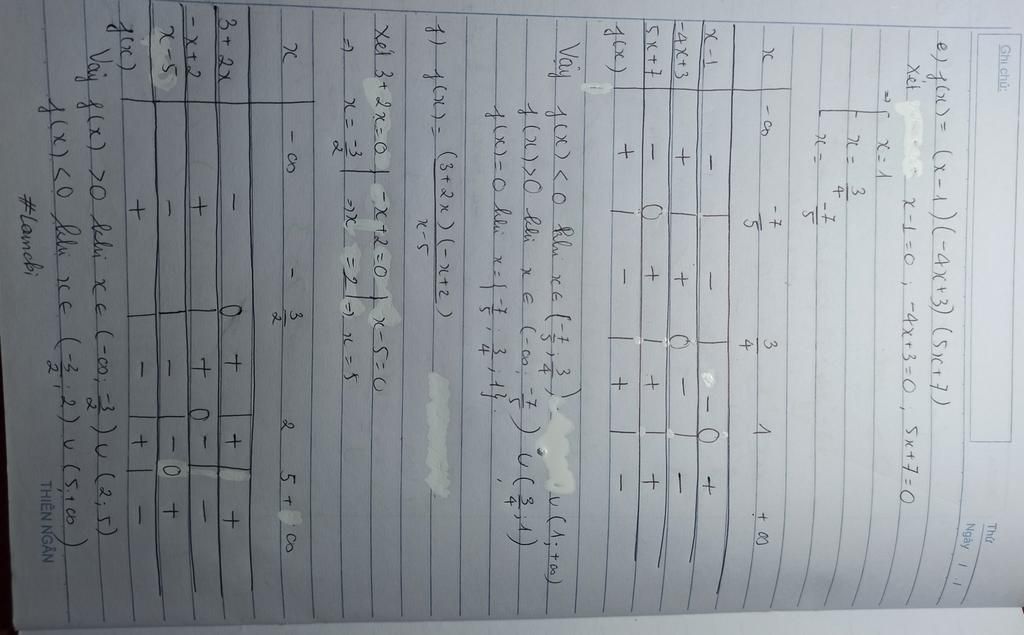 Ghi chú:
Thứ
Ngày / /
e) f(x) = (x-1)(-4x+3)(5x+7)
Xét x-1=0 ; -4x+3=0 ; 5x+7=0
⇒ [ x=1
x= 3/4
x= -7/5
x | -∞ -7/5 3/4 1 +∞
x-1 | - | - | - 0 +
-4x+3 | + | + 0 - | -
5x+7 | - 0 + | + | +
f(x) | + | - | + | -
Vậy f(x) < 0 khi x ∈ (-7/5 ; 3/4) ∪ (1 ; +∞)
f(x) > 0 khi x ∈ (-∞ ; -7/5) ∪ (3/4 ; 1)
f(x) = 0 khi x = { -7/5 ; 3/4 ; 1 }.
f) f(x) = (3+2x)(-x+2) / x-5
Xét 3+2x=0 | -x+2=0 | x-5=0
⇒ x = -3/2 | ⇒ x = 2 | ⇒ x = 5
x | -∞ -3/2 2 5 +∞
3+2x | - 0 + | + | +
-x+2 | + | + 0 - | -
x-5 | - | - | - 0 +
f(x) | + | - | + | -
Vậy f(x) > 0 khi x ∈ (-∞ ; -3/2) ∪ (2 ; 5)
f(x) < 0 khi x ∈ (-3/2 ; 2) ∪ (5 ; +∞)
#Lamchi
THIÊN NGÂN